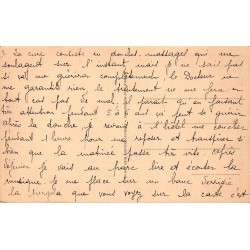 La cure consiste en douches massages qui me
soulagent sur l'instant mais je ne sais pas
si ça me guérira complètement, le Docteur ne
me garantit rien. Le traitement ne me fera en
tout cas pas de mal, il paraît qu'en faisant
très attention pendant 5 à 6 ans on peut se guérir
après la douche je reviens à l'hôtel me coucher
pendant 1 heure pour me reposer et transpirer si
bien que la matinée passe très vite après
déjeuner je vais au parc lire et écouter la
musique. Je me place sur un banc derrière
la pergola que vous voyez sur la carte c'est